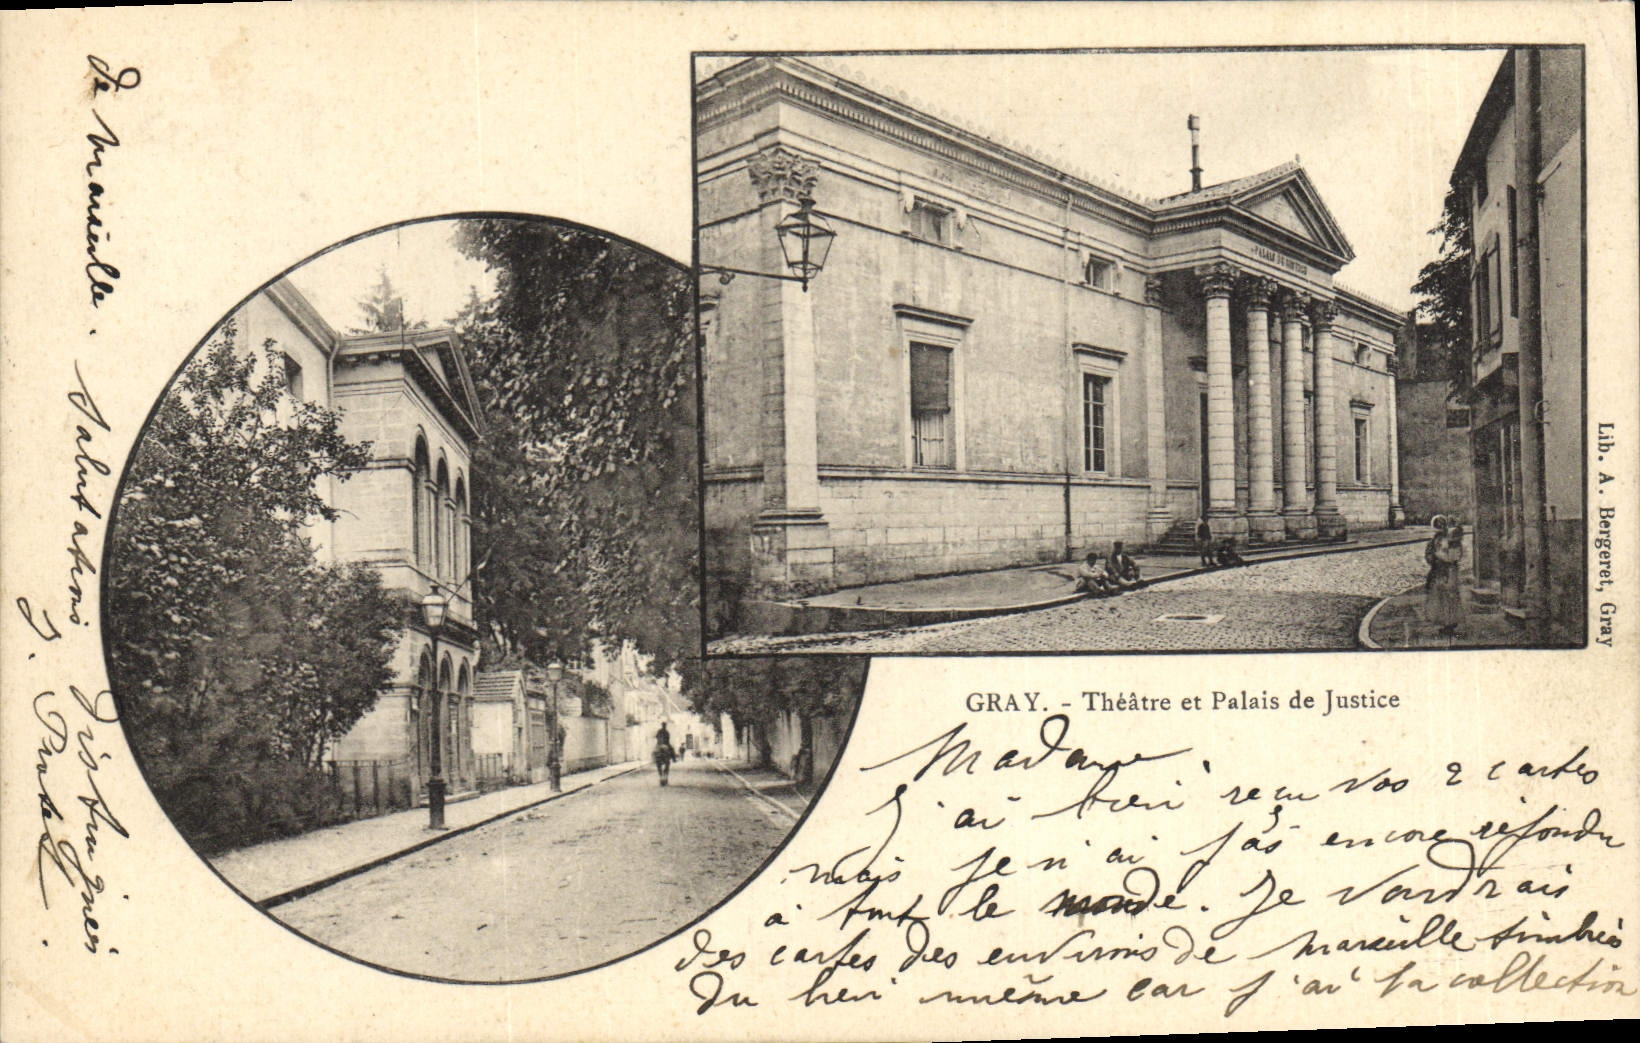 PALAIS DE JUSTICE
GRAY. - Théâtre et Palais de Justice
Lib. A. Bergeret, Gray
Madame,
J'ai bien reçu vos 2 cartes
mais je n'ai pas encore répondu
à tout le monde. Je voudrais
des cartes des environs de Marseille timbrés
du lieu même car j'ai la collection
de Marseille. Salutations distinguées
J. Protet.